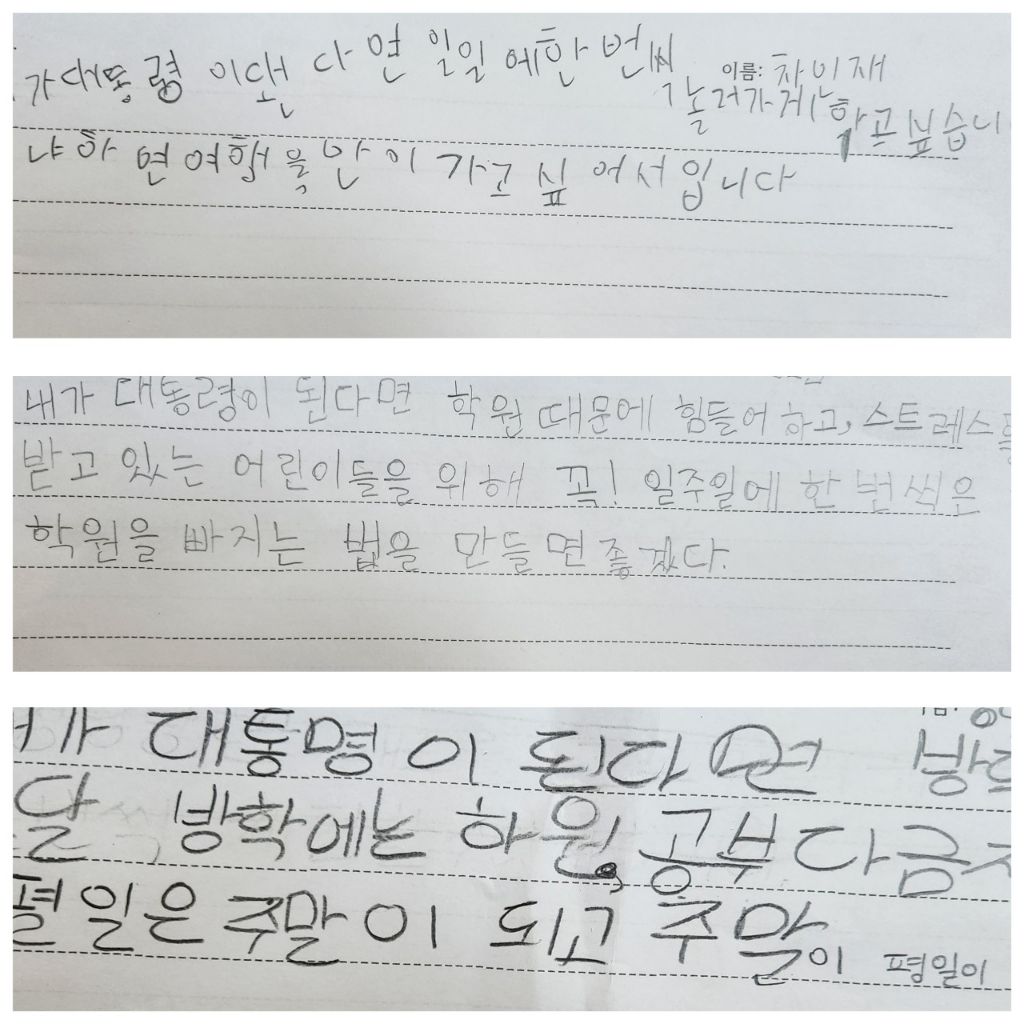 가대통령 이댄 다면 일일 에한 번씩
이름: 차인재
놀러가게 하고 싶습니
냐하 면 여행을 만이 가고 싶 어서입니다
내가 대통령이 된다면 학원 때문에 힘들어 하고, 스트레스를
받고 있는 어린이들을 위해 꼭! 일주일에 한 번씩은
학원을 빠지는 법을 만들면 좋겠다.
가 대통명 이 된다면
달 방학에는 하원, 공부 다 금지
평일은 주말이 되고 주말이 평일이